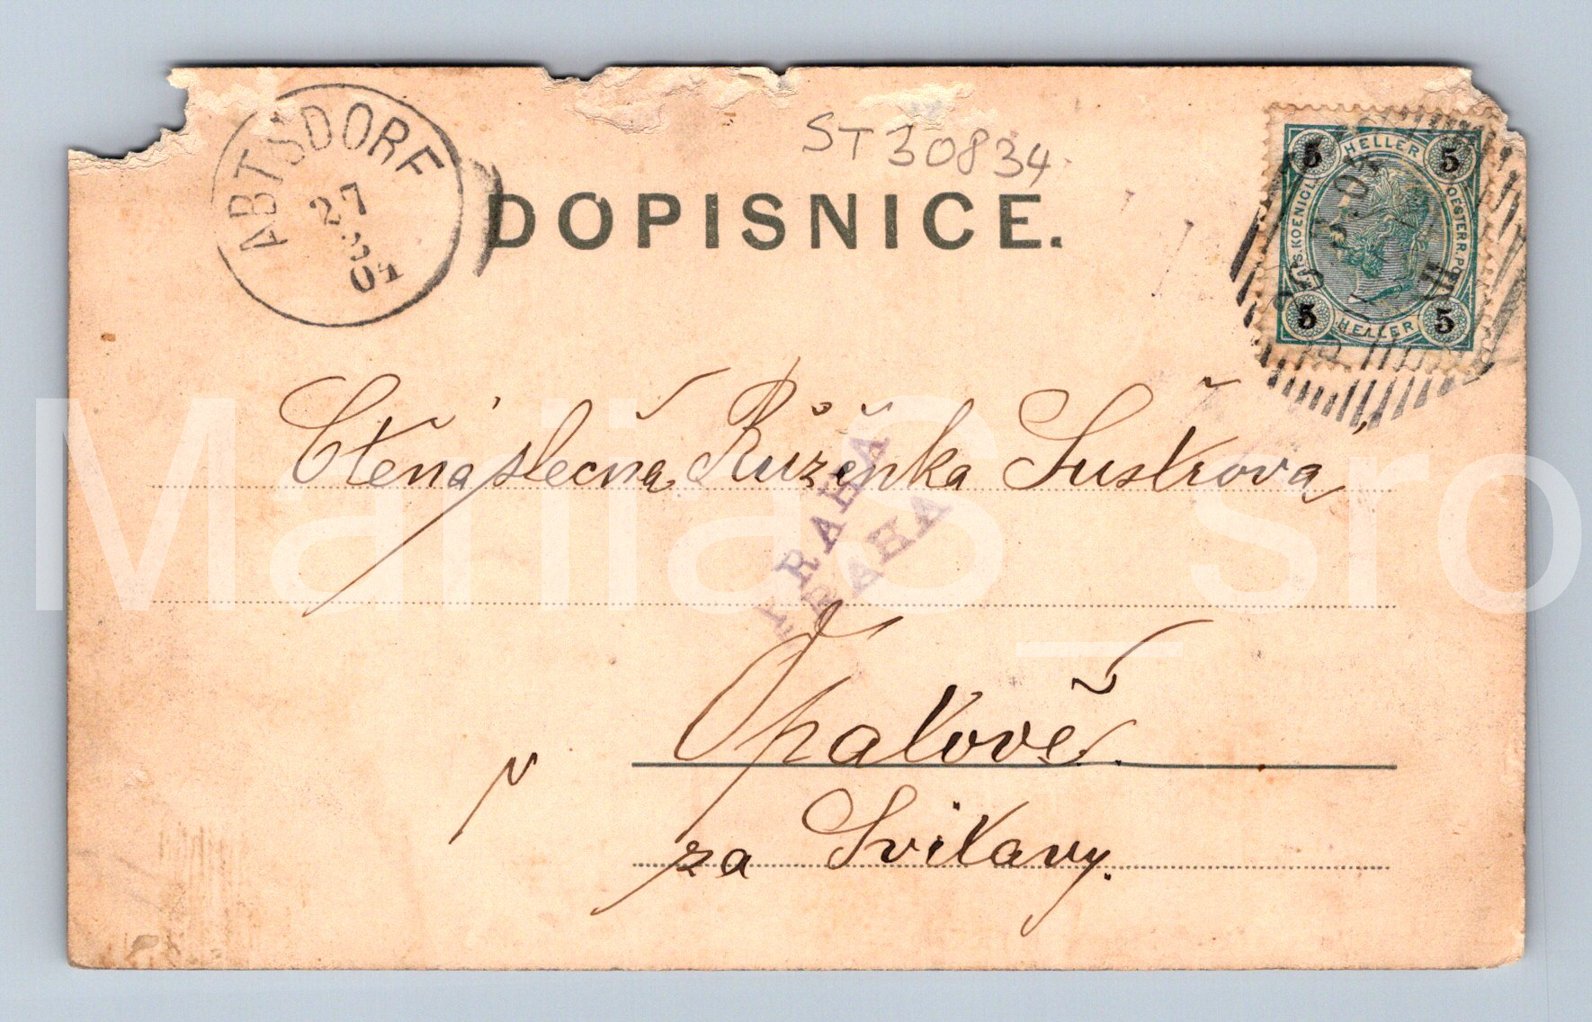 ABTSDORF
27
3
04
ST30834
DOPISNICE.
5 HELLER 5
K.K. OESTERR. POST
5 HELLER 5
Ctěná slečna Růženka Šustrova
PRAHA
PRAHA
v Opatově
za Svitavy.
MaliaS_sro